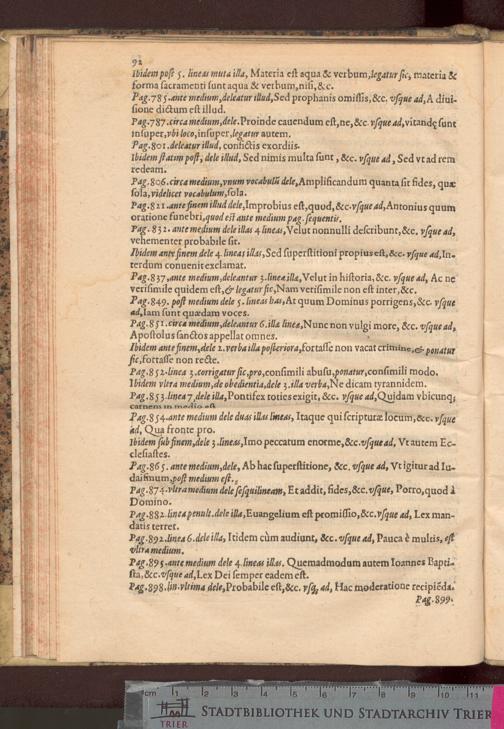 92
Ibidem post 5. lineas muta illa, Materia est aqua & verbum, legatur sic, materia &
forma sacramenti sunt aqua & verbum, nisi, &c.
Pag. 785. ante medium, deleatur illud, Sed prophanis omissis, &c. vsque ad, A diui-
sione dictum est illud.
Pag. 787. circa medium, dele. Proinde cauendum est, ne, &c. vsque ad, vitandę sunt
insuper, vbi loco, insuper, legatur autem.
Pag. 801. deleatur illud, confictis exordiis.
Ibidem statim post, dele illud, Sed nimis multa sunt, &c. vsque ad, Sed vt ad rem
redeam.
Pag. 806. circa medium, vnum vocabulū dele, Amplificandum quanta sit fides, quæ
sola, videlicet vocabulum, sola.
Pag. 821. ante finem illud dele, Improbius est, quod, &c. vsque ad, Antonius quum
oratione funebri, quod est ante medium pag. sequentis.
Pag. 832. ante medium dele illas 4 lineas, Velut nonnulli describunt, &c. vsque ad,
vehementer probabile sit.
Ibidem ante finem dele 4. lineas illas, Sed superstitioni propius est, &c. vsque ad, In-
terdum conuenit exclamat.
Pag. 837. ante medium, deleantur 3. linea illa, Velut in historia, &c. vsque ad, Ac ne
verisimile quidem est, & legatur sic, Nam verisimile non est inter, &c.
Pag. 849. post medium dele 5. lineas has, At quum Dominus porrigens, &c. vsque
ad, Iam sunt quædam voces.
Pag. 851. circa medium, deleantur 6. illa linea, Nunc non vulgi more, &c. vsque ad,
Apostolus sanctos appellat omnes.
Ibidem ante finem, dele 2. verba illa posteriora, fortasse non vacat crimine, & ponatur
sic, fortasse non recte.
Pag. 852. linea 3. corrigatur sic, pro, consimili abusu, ponatur, consimili modo.
Ibidem vltra medium, de obedientia, dele 3. illa verba, Ne dicam tyrannidem.
Pag. 853. linea 7. dele illa, Pontifex toties exigit, &c. vsque ad, Quidam vbicunq;
carnem in medio est
Pag. 854. ante medium dele duas illas lineas, Itaque qui scripturæ locum, &c. vsque
ad, Qua fronte pro.
Ibidem sub finem, dele 3. lineas, Imo peccatum enorme, &c. vsque ad, Vt autem Ec-
clesiastes.
Pag. 865. ante medium, dele, Ab hac superstitione, &c. vsque ad, Vt igitur ad Iu-
daismum, post medium est.
Pag. 874. vltra medium dele sesquilineam, Et addit, fides, &c. vsque, Porro, quod à
Domino.
Pag. 882. linea penult. dele illa, Euangelium est promissio, &c. vsque ad, Lex man-
datis terret.
Pag. 892. linea 6. dele illa, Itidem cùm audiunt, &c. vsque ad, Pauca è multis, est
vltra medium.
Pag. 895. ante medium dele 4. lineas illas. Quemadmodum autem Ioannes Bapti-
sta, &c. vsque ad, Lex Dei semper eadem est.
Pag. 898. lin. vltima dele, Probabile est, &c. vsq; ad, Hac moderatione recipiēda.
Pag. 899.
cm 1 2 3 4 5 6 7 8 9 10 11
STADTBIBLIOTHEK UND STADTARCHIV TRIER
TRIER